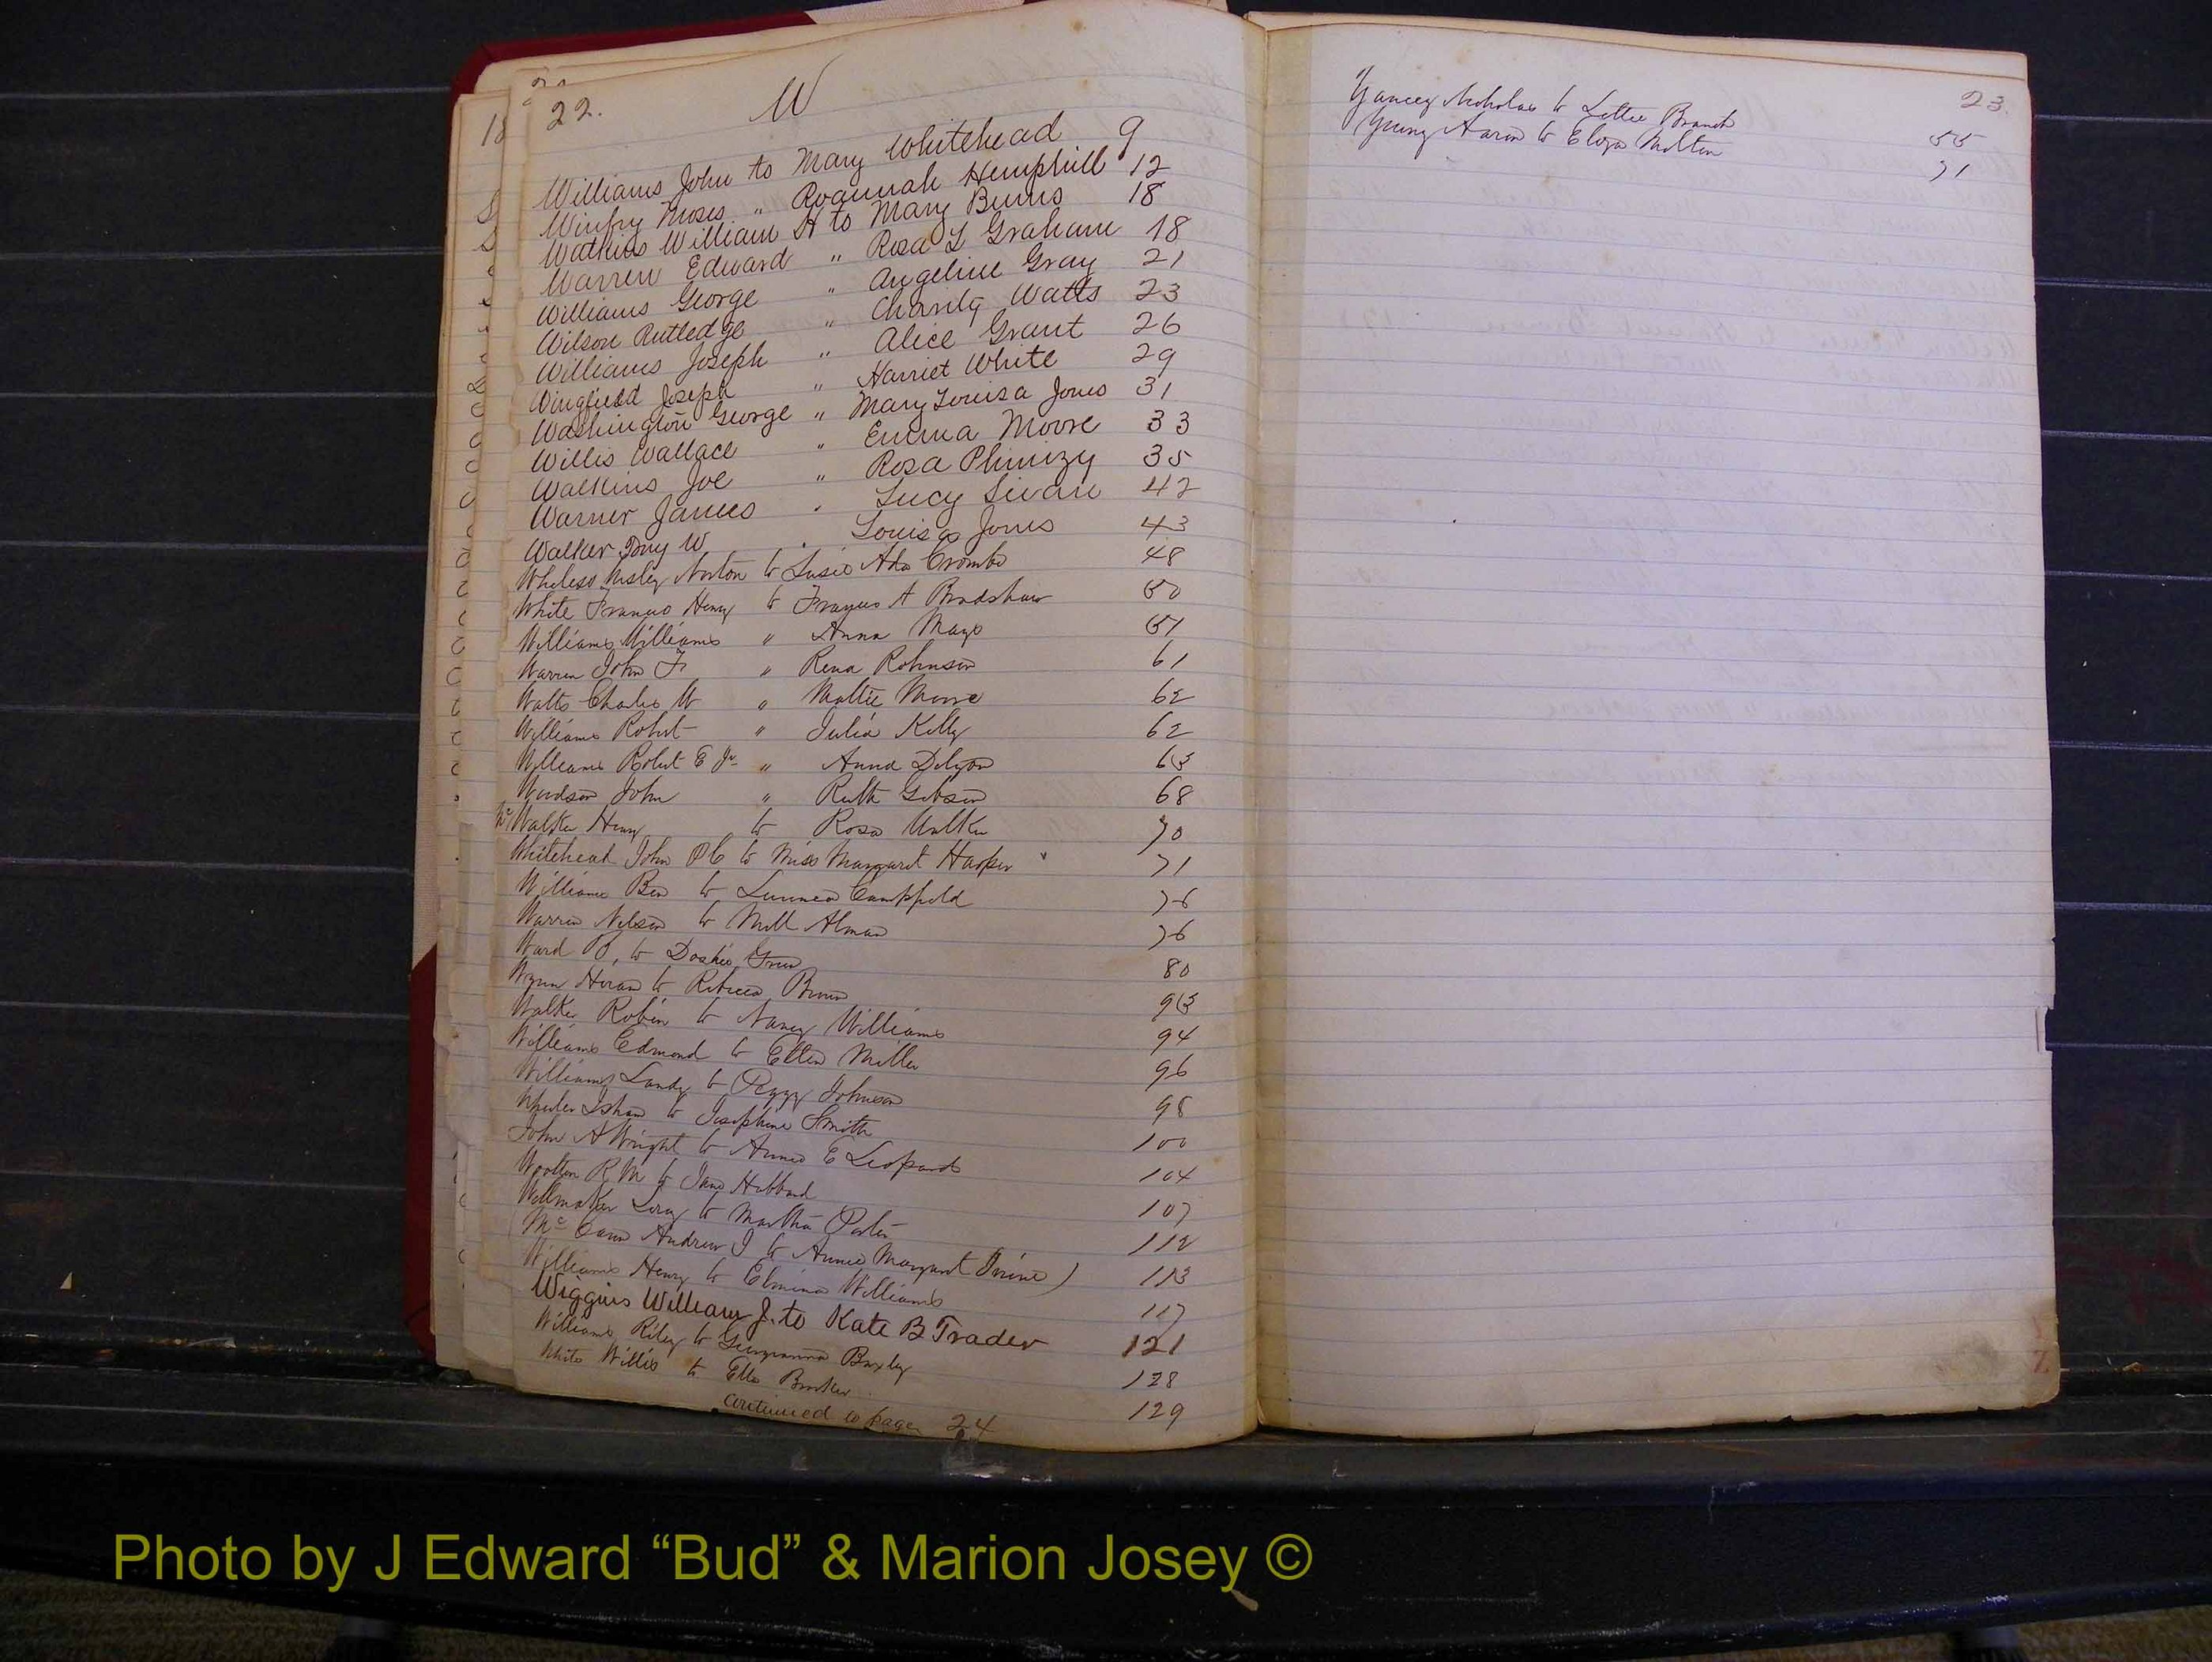 22.
W
Williams John to Mary Whitehead 9
Winfry Moses " Roannah Hemphill 12
Watkins William H to Mary Burns 18
Warren Edward " Rosa L Graham 18
Williams George " Angeline Gray 21
Wilson Rutledge " Charity Watts 23
Williams Joseph " Alice Grant 26
Wingfield Joseph " Harriet White 29
Washington George " Mary Louisa Jones 31
Willis Wallace " Emma Moore 33
Watkins Joe " Rosa Phinizy 35
Warner James " Lucy Swan 42
Walker W Louisa Jones 43
Wheless Norton to Susie Ada Crombe 48
White Francis Henry to A Bradshaw 50
Williams Williams " Anna Mayo 51
Warren John F " Rena Robinson 61
Watts Charles W " Mattie Moore 62
Williams Robert " Julia Kelly 62
Williams Robert E Jr " Anna 63
Woodson John " Ruth Gibson 68
Walker Henry to Rosa Walker 70
Whitehead John P C to Miss Margaret Harper 71
Williams Ben to Campfield 76
Warren Nelson to Alman 76
Ward to Doshie Green 80
Wynn Hiram to Rebecca Brown 93
Walker Robin to Nancy Williams 94
Williams Edmond to Ellen Miller 96
Williams Landy to Peggy Johnson 98
Wheeler Isham to Josephine Smith 100
John A Wright to Annie E Leopard 104
Wootten R M to Jane Hubbard 107
to Martha 112
Mc Cann Andrew J to Annie Margaret Irvine) 113
Williams Henry to Elmina Williams 117
Wiggins William J. to Kate B Trader 121
Williams Riley to Baxley 128
White Willis to Ella 129
Continued to page 24
23.
Yancey Nicholas to Lettie Branch 55
Young Aaron to Eliza Milton 71
Photo by J Edward “Bud” & Marion Josey ©